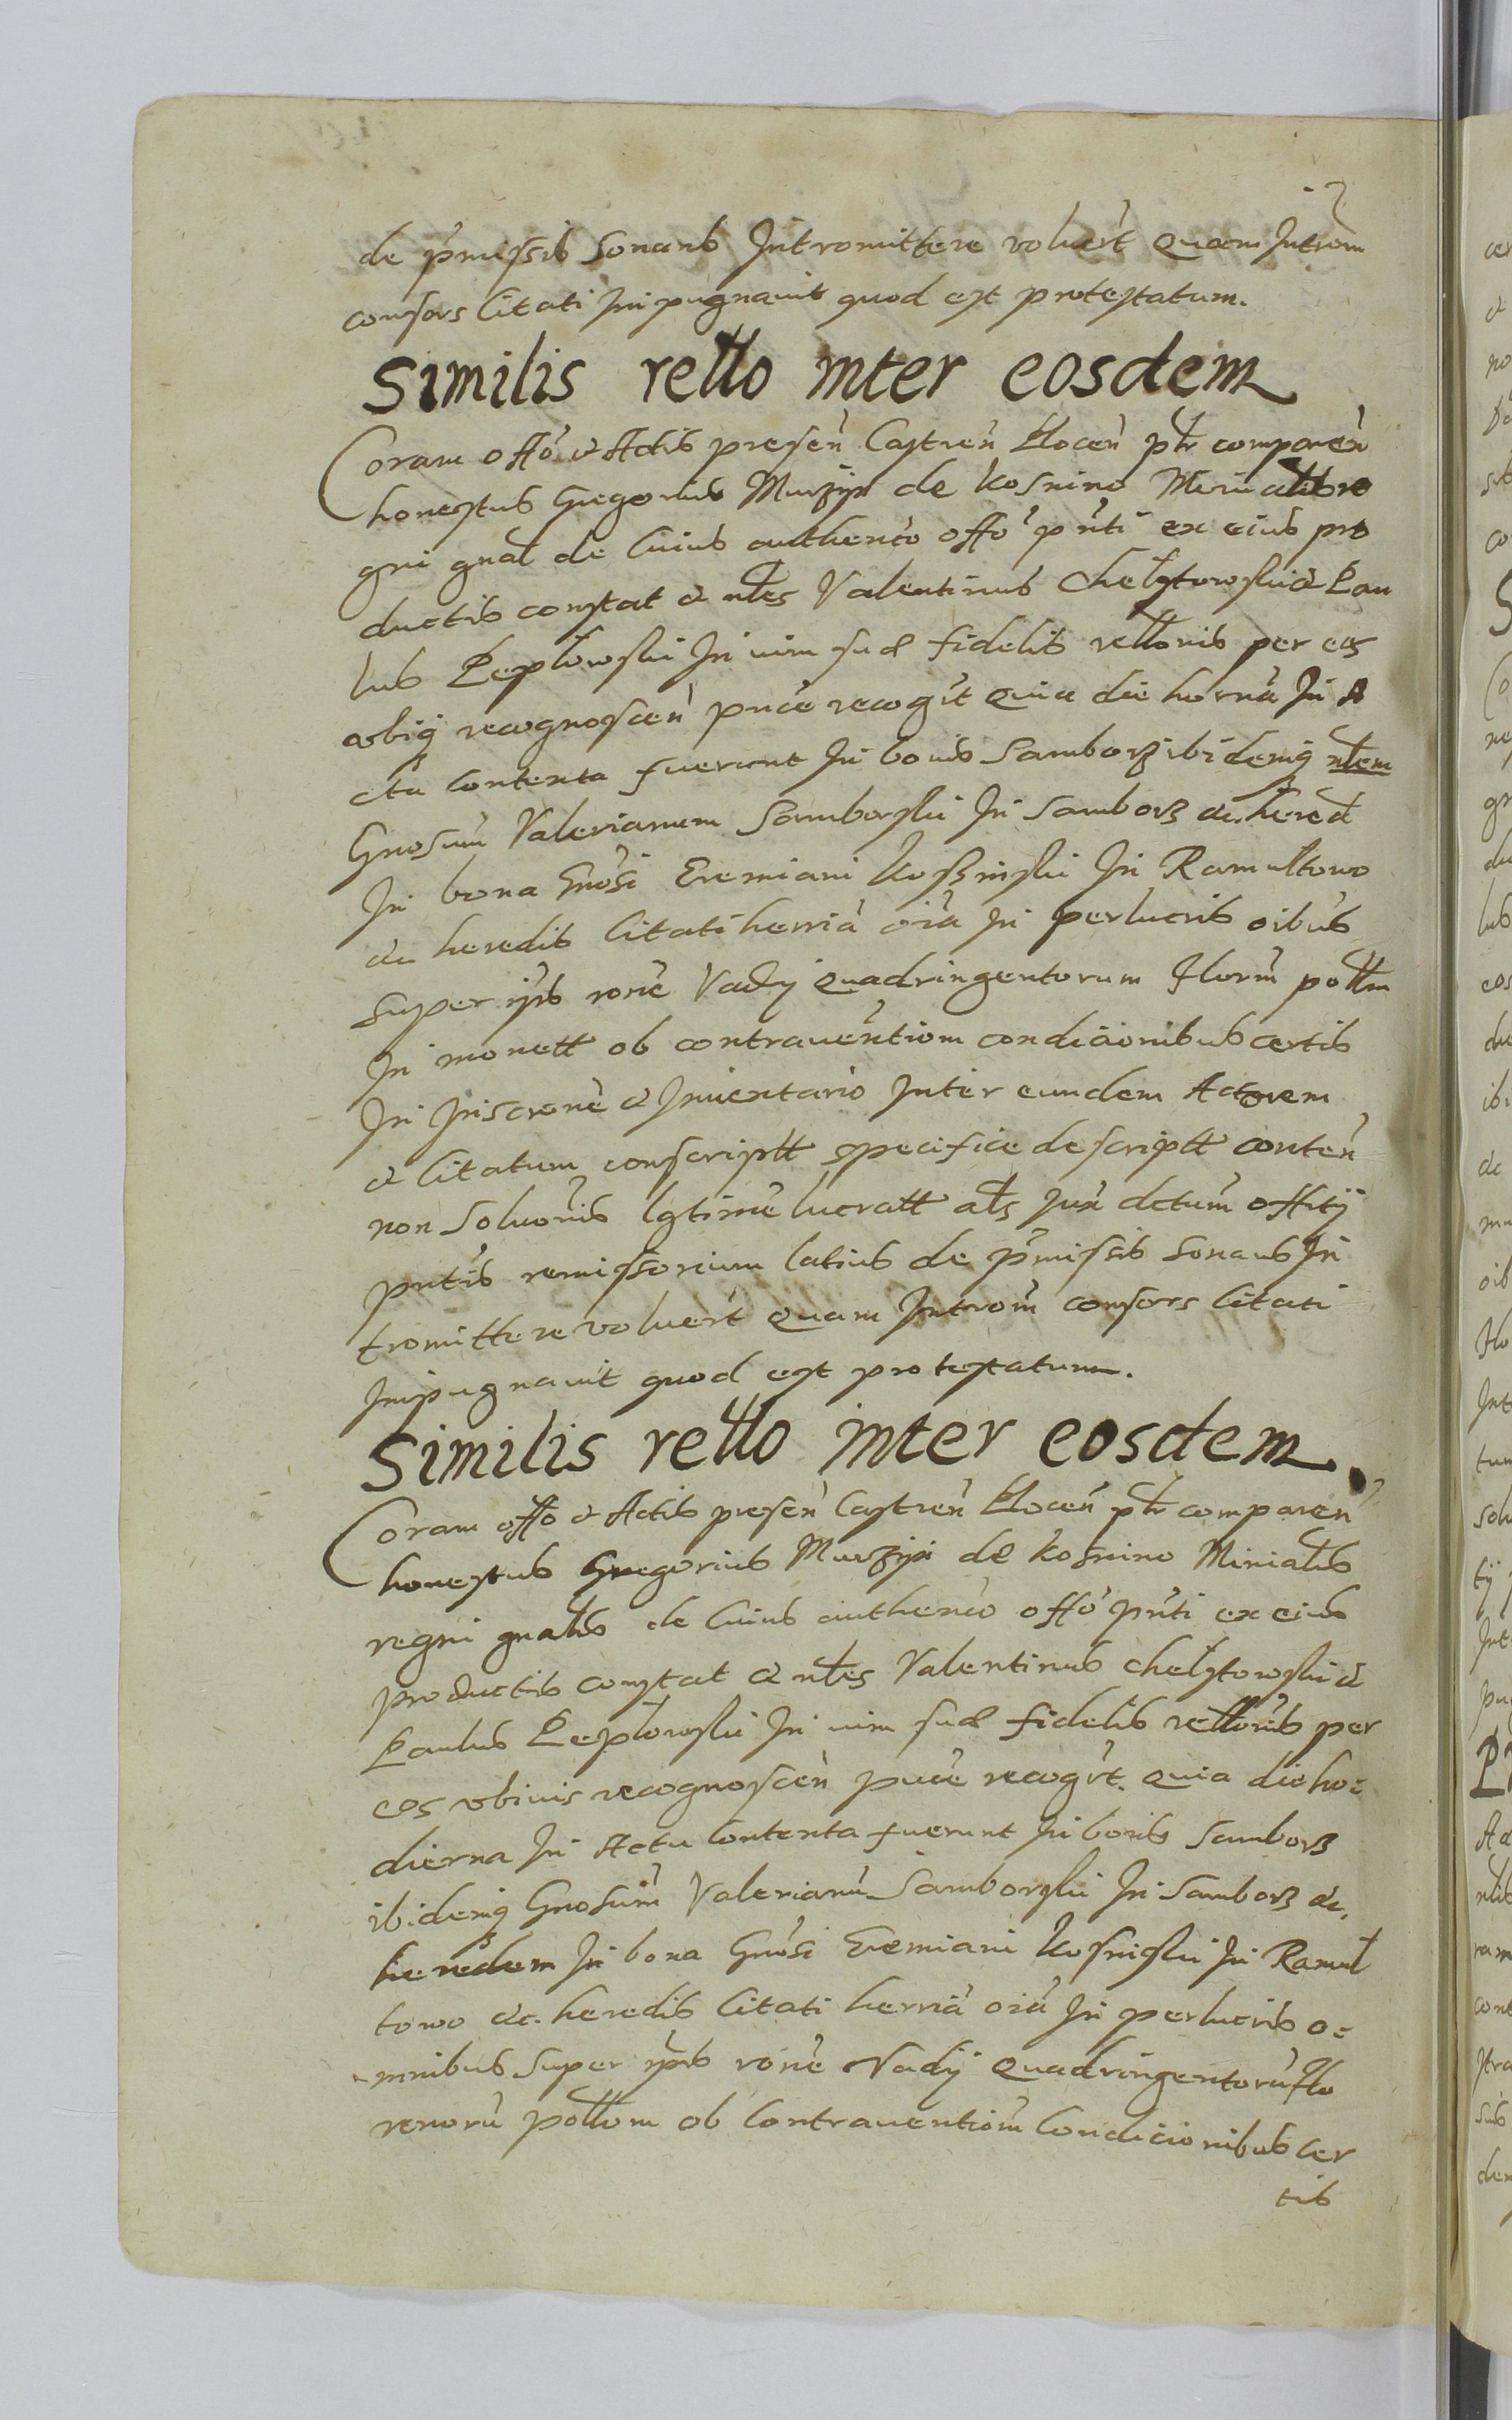 de pmissis sonans Intromittere voluert quam Introm
consors Citati Inpugnauit quod est protestatum.
Similis retto inter eosdem
Coram offo & Actis presen Castren Plocen ptr comparen
honestus Gregorius Murzyn de Kosnino Minialis re
gni gnal de Cuius authenco offo pnti ex eius pro
ductis constat & nles Valentinus Chelstowski & Pau
lus Peplowski In vim suæ fidelis rellonis per eos
vbiq recognoscen pnce recogt Quia die horna In A
ctu Contenta fuerunt In bonis Samborz ibidemq nlem
Gnosum Valerianum Samborski In Samborz &c. hered
In bona Gnosi Eremiani Koszniski In Ramultowo
&c heredis Citati herria oia In perlucris oibus
super ipis rone Vadij Quadringentorum Florm pollm
In monett ob contrauentiom condicionibus certis
In Inscrone & Inuentario Inter eundem Actorem
& Citatum conscriptt specifice descriptt conten
non soluonis lgtime lucratt als Jux dctum offitij
pntis remissorium latius de pmissis sonans In
tromittere voluert quam Introm consors Citati
Inpugnauit quod est protestatum.
Similis retto inter eosdem.
Coram offo & Actis presen Castren Plocen ptr comparen
honestus Gregorius Murzyn de Kosnino Minialis
regni gnalis de Cuius authenco offo pnti ex eius
productis constat & nles Valentinus Chelstowski &
Paulus Peplowski In vim suæ fidelis rellonis per
eos vbiuis recognoscen pnce recogt. Quia die ho=
dierna In Actu Contenta fuerunt In bonis Samborz
ibidemq Gnosum Valerianu Samborski In Samborz &c.
heredem In bona Gnosi Eremiani Kosniski In Ramul
towo &c. heredis Citati herria oia In perlucris o=
mnibus super ipis rone Vadij Quadringentoru flo
renoru pollom ob Contrauentiom Condicionibus Cer
tis